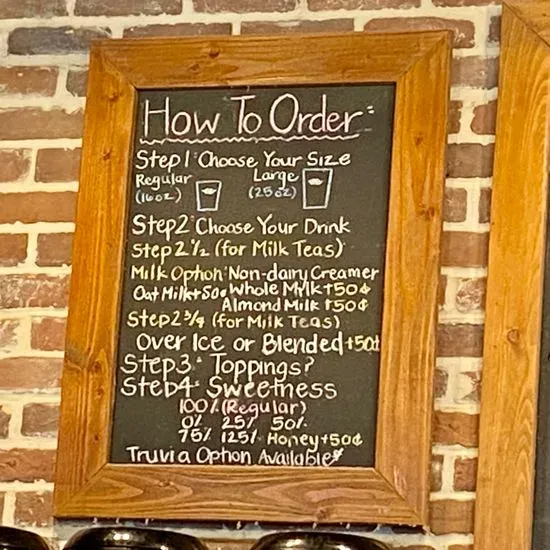 How To Order:
Step 1: Choose Your Size
Regular Large
(16oz) (25oz)
Step2: Choose Your Drink
Step 2 1/2 (for Milk Teas)
Milk Option: Non-dairy Creamer
Oat Milk+50¢ Whole Mylk+50¢
Almond Milk +50¢
Step 2 3/4 (for Milk Teas)
Over Ice or Blended+50¢
Step3: Toppings?
Step4: Sweetness
100% (Regular)
0% 25% 50%
75% 125% Honey+50¢
Truvia Option Available*